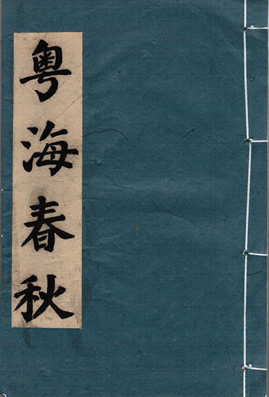 粤海春秋